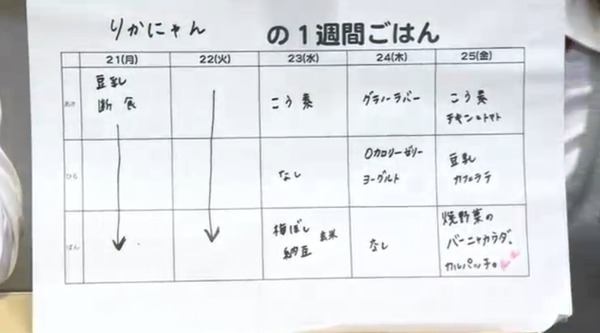 りかにゃん の1週間ごはん
21(月) 22(火) 23(水) 24(木) 25(金)
あさ
豆乳
断食
こう素
グラノーラバー
こう素
チキン&トマト
ひる
なし
0カロリーゼリー
ヨーグルト
豆乳
カフェラテ
ばん
梅ぼし 玄米
納豆
なし
焼野菜の
バーニャカウダ、
カルパッチョ。